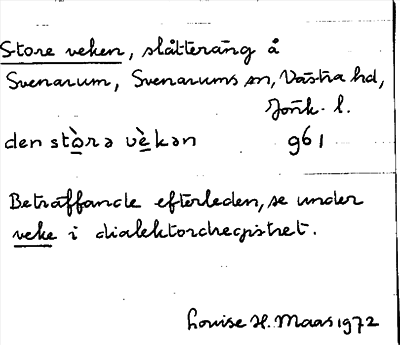 Store veken, slåtteräng å
Svenarum, Svenarums sn, Västra hd,
Jönk. l.
den stò̱rə vè̱kən 961
Beträffande efterleden, se under
veke i dialektordregistret.
Louise H. Maas 1972